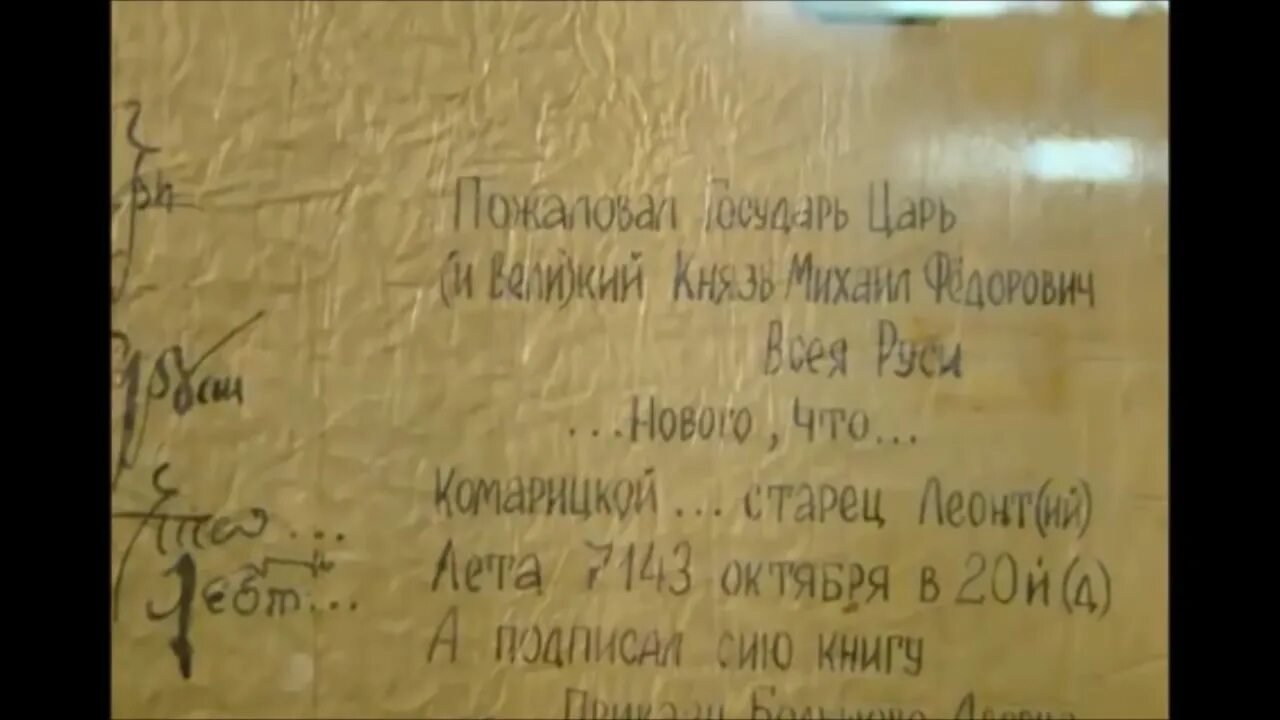 Пожаловал Государь Царь
(и Вели)кий Князь Михаил Фёдорович
Всея Руси
...Нового, что...
Комарицкой ... старец Леонт(ий)
Лета 7143 октября в 20й(д)
А подписал сию книгу
Приказу Большого Дворца